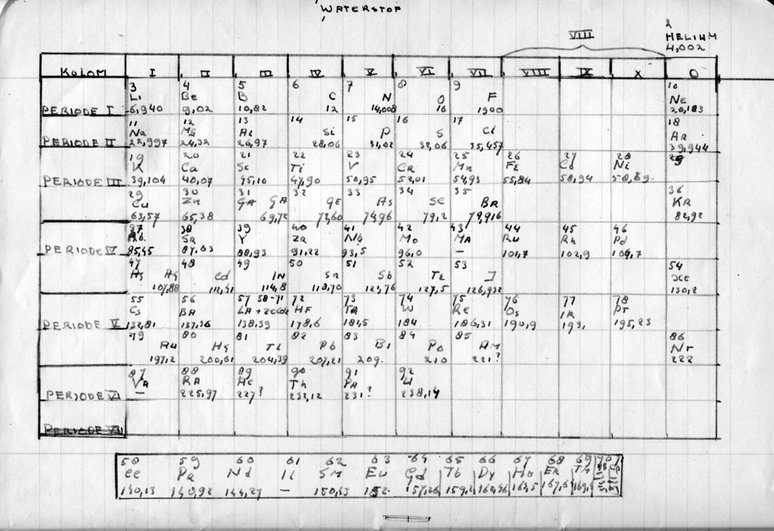 WATERSTOF
VIII
2
HELIUM
4,002
KOLOM I II III IV V VI VII VIII IX X 0
3 4 5 6 7 8 9 10
Li Be B C N O F Ne
PERIODE I 6,940 9,02 10,82 12 14,008 16 1900 20,183
11 12 13 14 15 16 17 18
Na Mg Al Si P S Cl AR
PERIODE II 22,997 24,32 26,97 28,06 31,02 32,06 35,457 39,944
19 20 21 22 23 24 25 26 27 28
K Ca Sc Ti V CR Mn Fe Ni
PERIODE III 39,104 40,07 45,10 47,90 50,95 52,01 54,93 55,84 58,94 58,69
29 30 31 32 33 34 35 36
Cu Zn GA GA GE As SE BR KR
63,57 65,38 69,72 72,60 74,96 79,2 79,916 82,92
37 38 39 40 41 42 43 44 45 46
Rb SR Y ZR Nb Mo MA Ru Rh Pd
PERIODE IV 85,45 87,63 88,93 91,22 93,5 96,0 — 101,7 102,9 106,7
47 48 49 50 51 52 53 54
Ag Ag Cd IN Sn Sb TE J XE
107,88 112,41 114,8 118,70 121,76 127,5 126,932 130,2
55 56 57 58-71 72 73 74 75 76 77 78
Cs BA LA HF TA W Re Os IR PT
PERIODE V 132,81 137,36 138,39 178,6 181,5 184 186,31 190,9 193,1 195,23
79 80 81 82 83 84 85 86
Au Hg TL Pb Bi Po AM NT
197,2 200,61 204,39 207,21 209. 210 221? 222
87 88 89 90 91 92
VA RA Ac Th PA U
PERIODE VI — 225,97 227? 232,12 231? 238,14
PERIODE VII
58 59 60 61 62 63 64 65 66 67 68 69 70
CE PR Nd IL SM Eu Gd Tb Dy Ho ER TM
140,13 140,92 144,27 — 150,43 152. 157,26 159,2 162,46 163,5 167,64